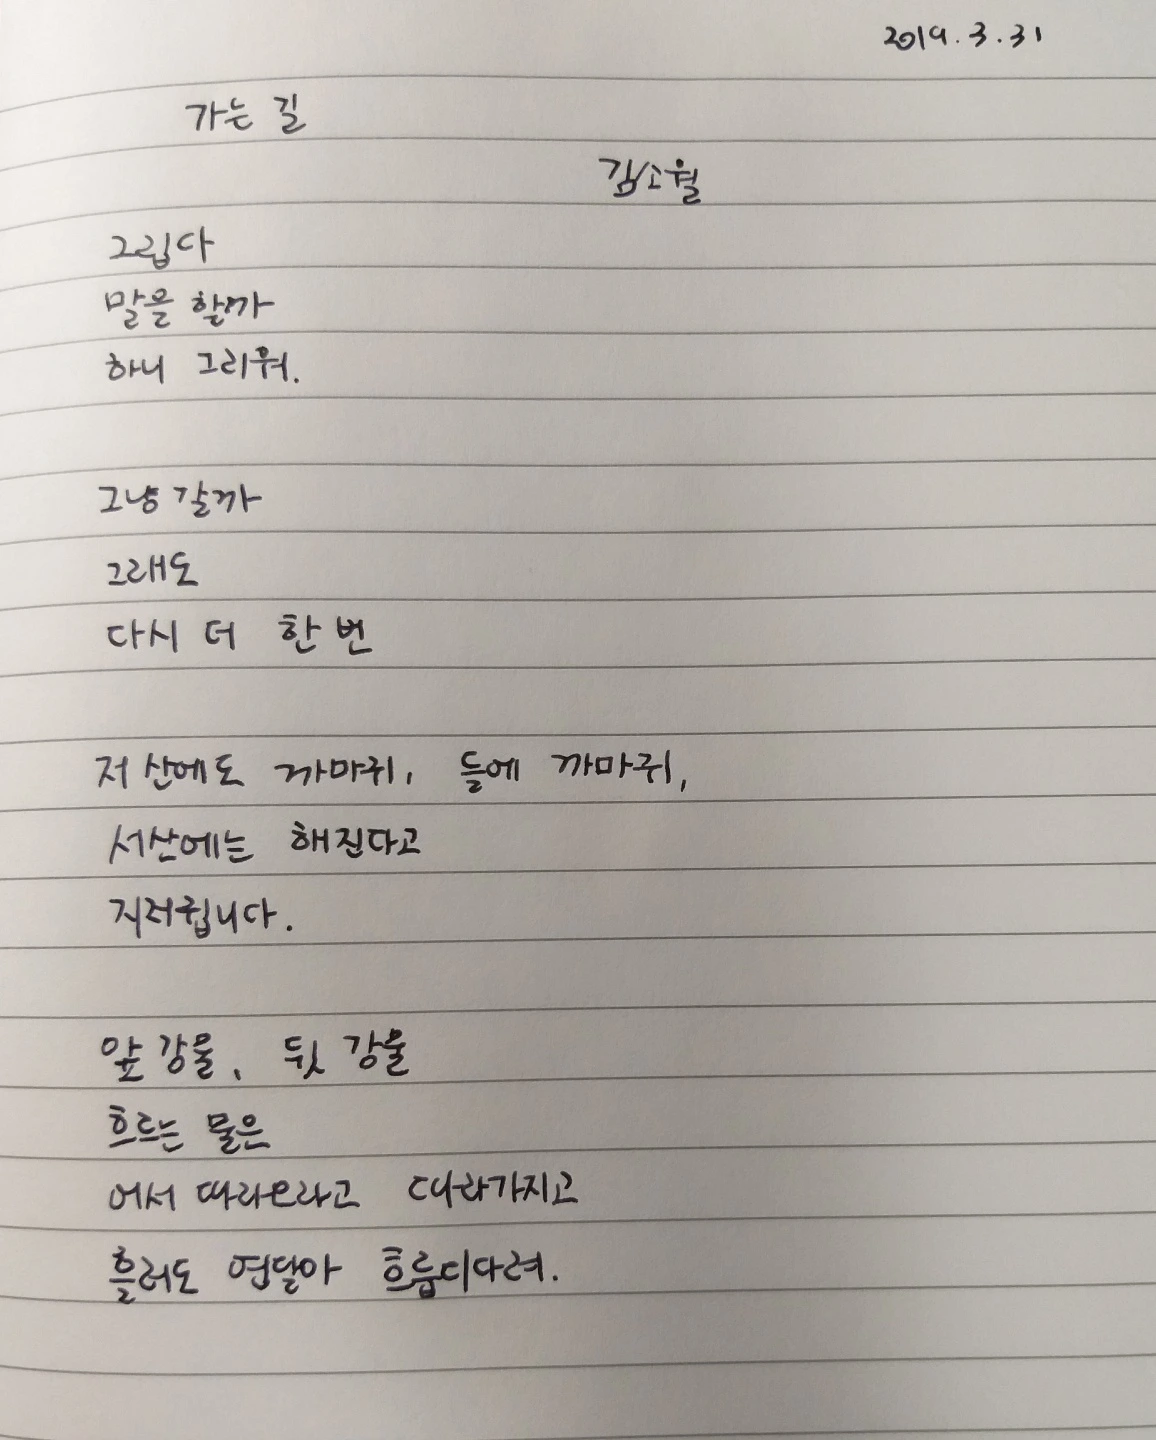 2019. 3. 31
가는 길
김소월
그립다
말을 할까
하니 그리워.
그냥 갈까
그래도
다시 더 한 번
저 산에도 까마귀, 들에 까마귀,
서산에는 해진다고
지저귑니다.
앞 강물, 뒷 강물
흐르는 물은
어서 따라오라고 따라가지고
흘러도 연달아 흐릅디다려.